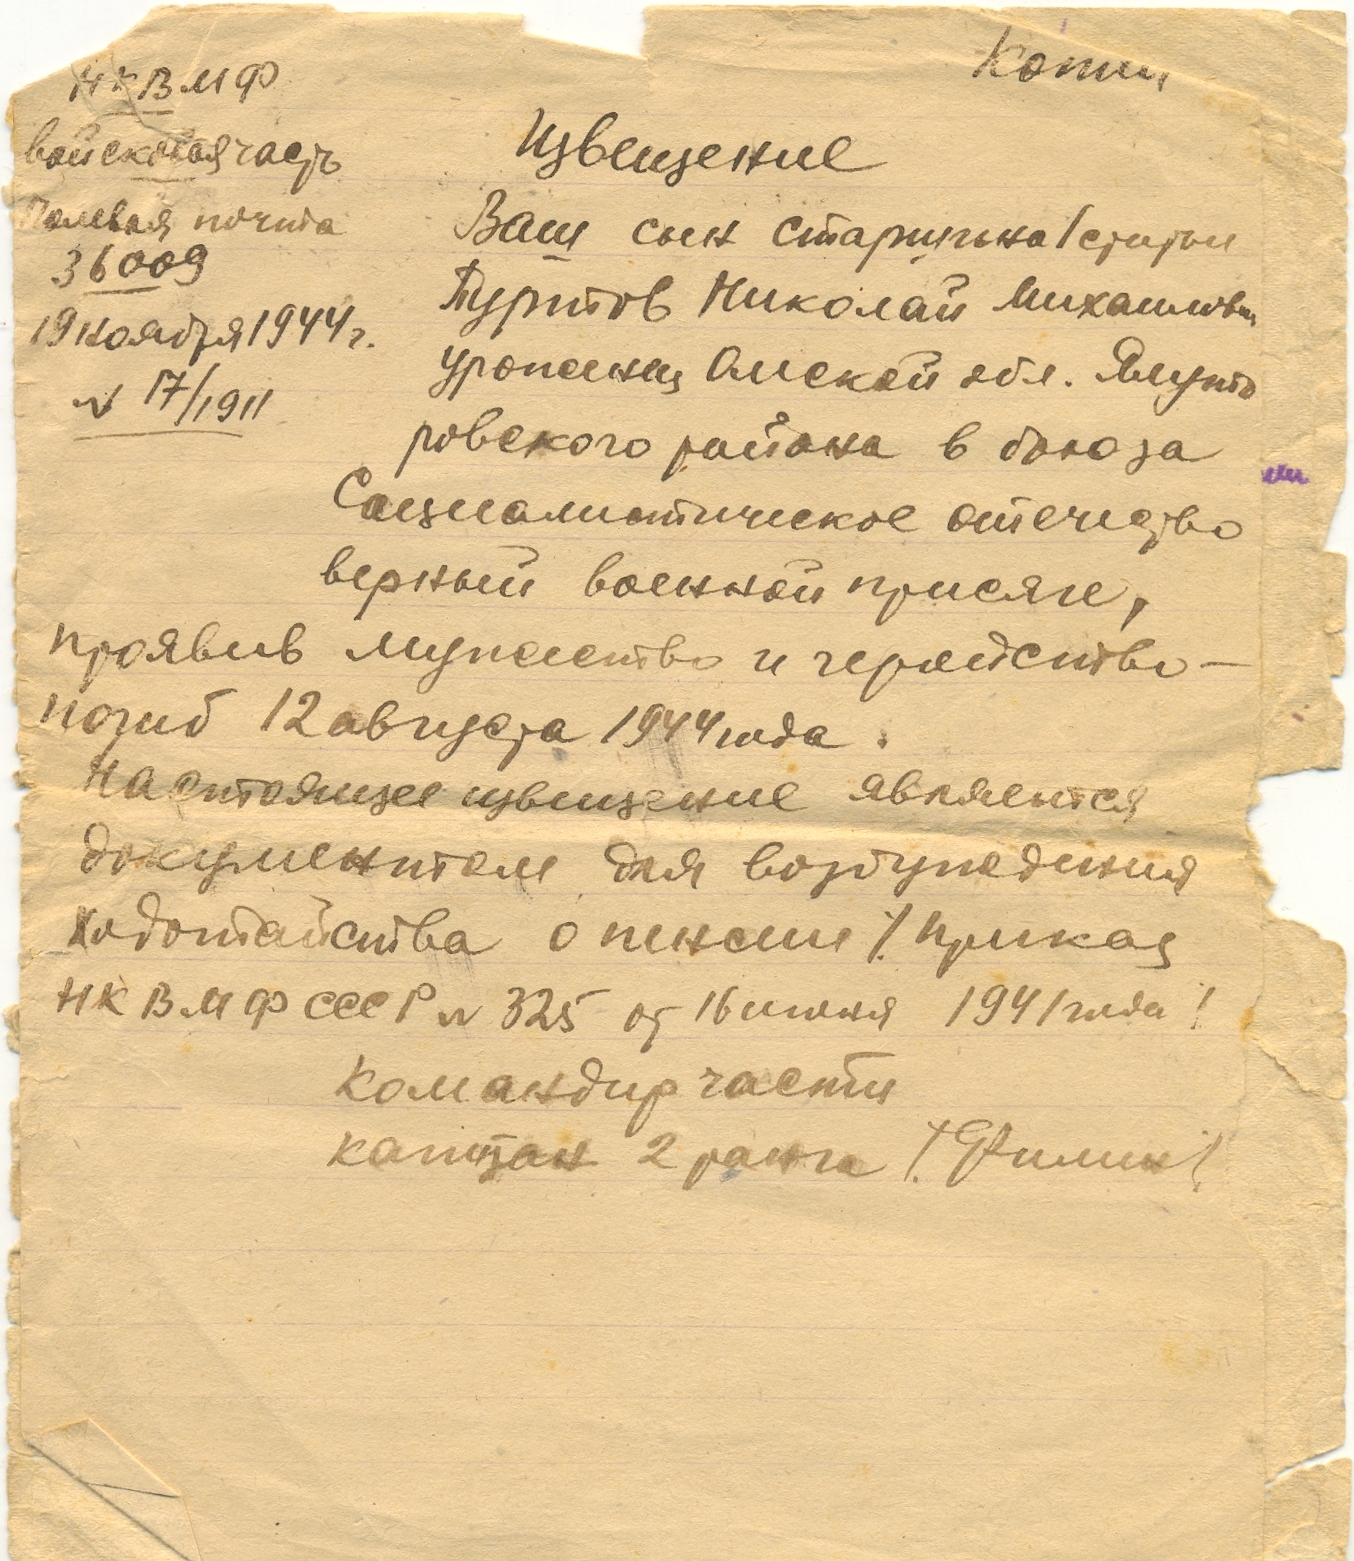 Копия
НКВМФ
войсковая часть
Полевая почта
36009
19 ноября 1944 г.
№ 17/1911
Извещение
Ваш сын старшина 1 статьи
Туртов Николай Михайлович
уроженец Омской обл. Ялуто
ровского района в боюза
Социалистическое отечество
верный военной присяге,
проявив мужество и геройство –
погиб 12 августа 1944 года.
Настоящее извещение является
документом для возбуждения
ходотайства о пенсии /. Приказ
НКВМФ СССР № 325 от 16 июня 1941 года /
Командир части
капитан 2 ранга /. Филин /.